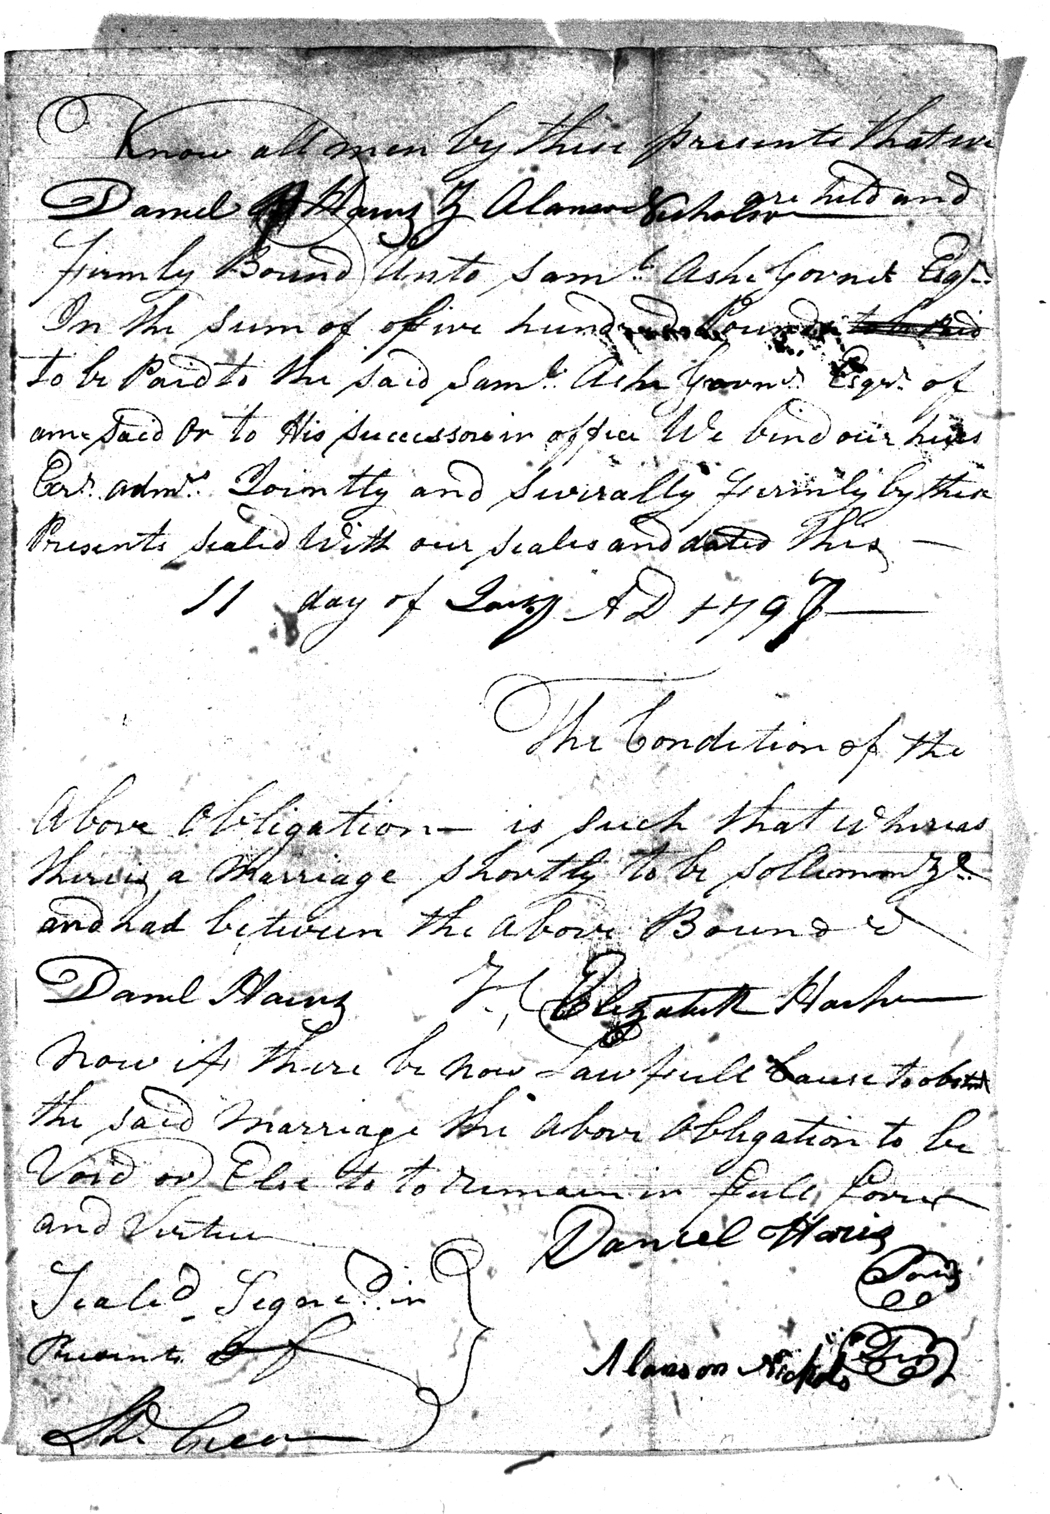 Know all men by these presents that we
Daniel Hainz & Alanson Nicholson are held and
firmly Bound Unto Saml. Ashe Govner Esqr.
In the Sum of of five hundred Pounds to be Paid
to be Paid to the said Saml. Ashe Govnr. Esqr. of
afore said Or to His successors in office We bind our heirs
Exrs. admrs. Jointly and severally firmly by these
Presents sealed With our seales and dated This
11 day of Jany AD 1797
The Condition of the
Above Obligation is such that whereas
there is a Marriage shortly to be sollemnz
and had between the above Bound
Daniel Hainz & Elizabeth
Now if there be now Lawfull Cause to obstrct
the said Marriage the above obligation to be
Void or Else to to remain in full force
and Virtue
Daniel Hainz
Seald Signed in
Presents of
Alanson Nichols